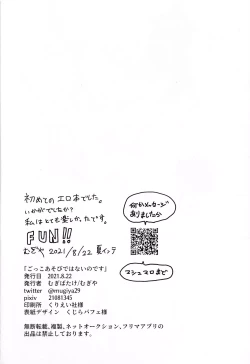 初めてのエロ本でした。
いかがでしたか?
私はとても楽しかったです。
FUN!!
むぎや 2021/8/22 夏インテ
何かメッセージ
ありましたら
マシュマロまで
『ごっこあそびではないのです』
発行日 2021.8.22
発行者 むぎばたけ/むぎや
twitter @mugiya29
pixiv 21081345
印刷所 くりえい社様
表紙デザイン くじらパフェ様
無断転載、複製、ネットオークション、フリマアプリの
出品は禁止しております。